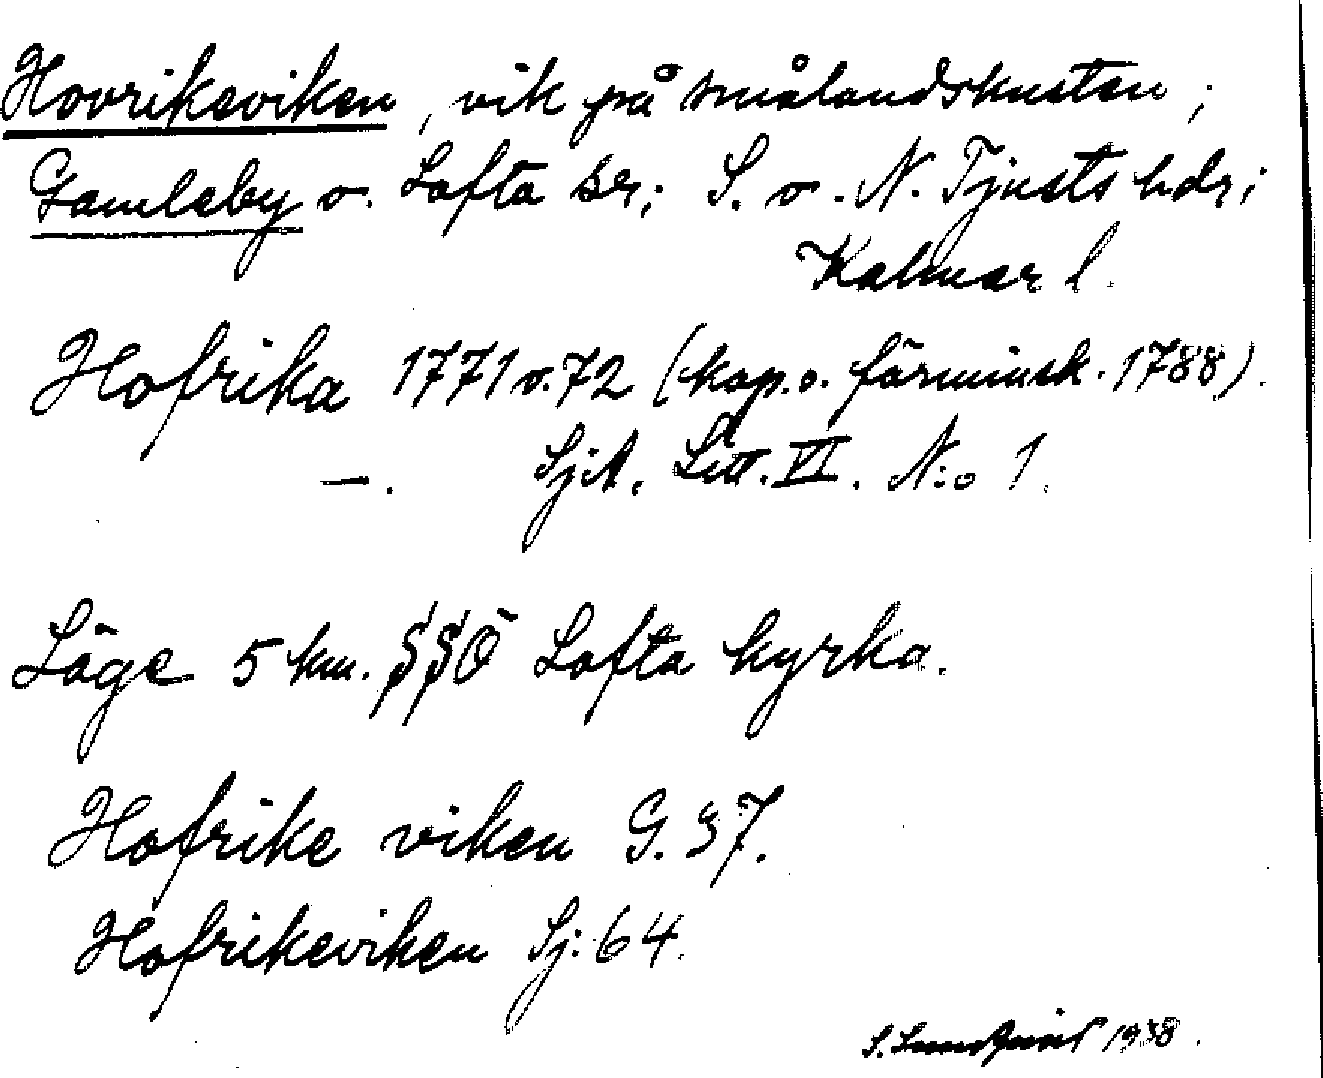 Hovrikeviken, vik på smålandskusten;
Gamleby o. Lofta sr; S. o. N. Tjusts hdr;
Kalmar l.
Hofrika 1771 o. 72 (kop. o. förminsk. 1788).
—. SjA. Litt. VI. N:o 1.
Läge 5 km. SSÖ Lofta kyrka.
Hofrike viken G. 37.
Hofrikeviken Sj: 64.
S. Lundqvist 1938.